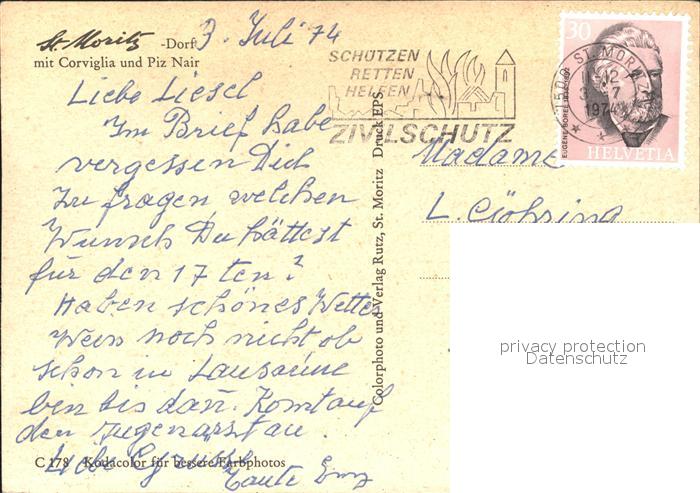 St. Moritz -Dorf
mit Corviglia und Piz Nair
3. Juli 74
Liebe Liesel
Im Brief habe
vergessen Dich
zu fragen, welchen
Wunsch Du hättest
für den 17ten?
Haben schönes Wetter
Weis noch nicht ob
schon in Lausanne
bin bis dan. Komt auf
den Augenarzt an.
Liebe Grüsse
Tante Emy
C 178 Kodacolor für bessere Farbphotos
Colorphoto und Verlag Rutz, St. Moritz Druck EPS
SCHÜTZEN
RETTEN
HELFEN
ZIVILSCHUTZ
7500 ST. MORITZ
-12
3. 7
1974
30
EUGENE BOREL
HELVETIA
Madame
L. Göhring
privacy protection
Datenschutz